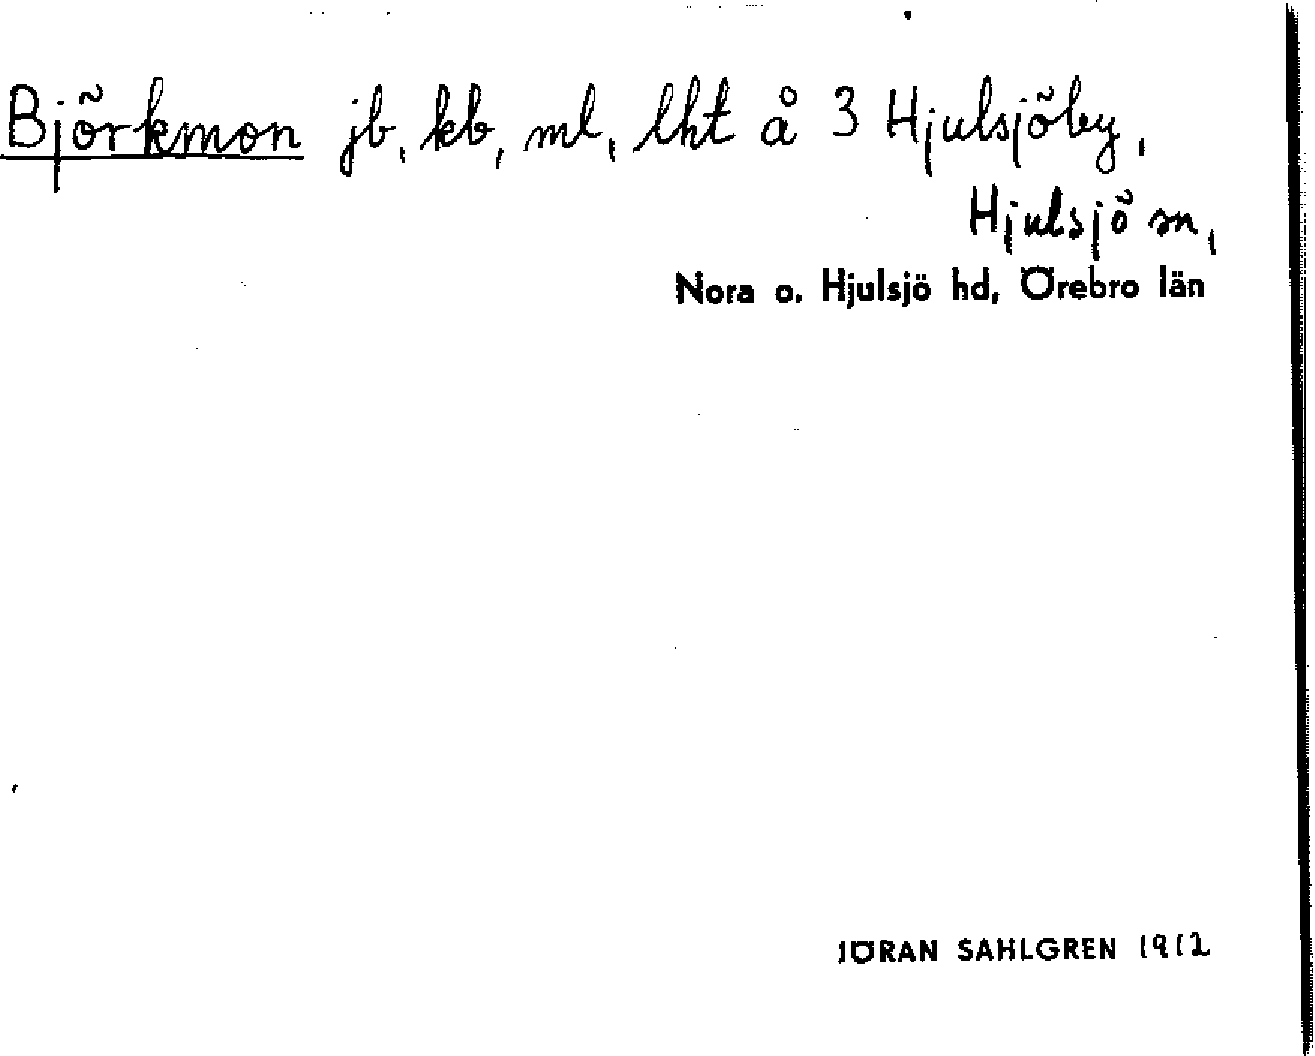 Björkmon jb, kb, ml, lht å 3 Hjulsjöby,
Hjulsjö sn,
Nora o. Hjulsjö hd, Örebro län
JÖRAN SAHLGREN 1912